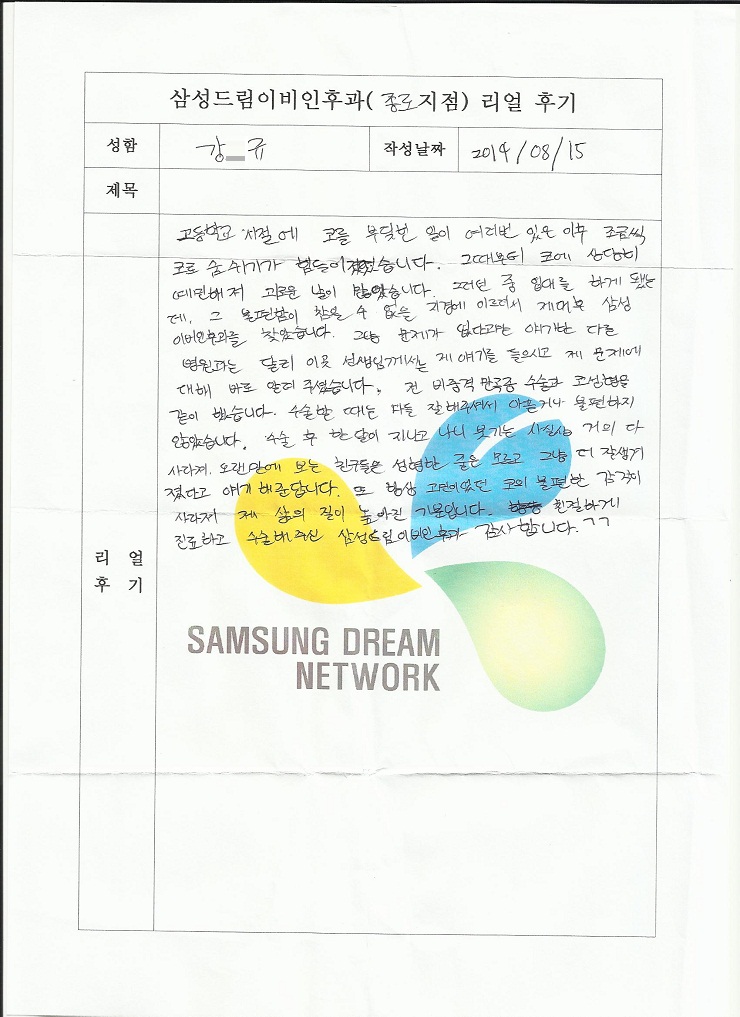 삼성드림이비인후과( 종로지점) 리얼 후기
성함
강 규
작성날짜
2014/08/15
제목
고등학교 시절에 코를 부딪힌 일이 여러번 있은 이후 조금씩
코로 숨쉬기가 힘들어졌었습니다. 그때부터 코에 상당히
예민해져 괴로운 날이 많았습니다. 그러던 중 입대를 하게 됐는
데, 그 불편함이 참을 수 없을 지경에 이르러서 제대후 삼성
이비인후과를 찾았습니다. 그냥 문제가 없다고만 얘기한 다른
병원과는 달리 이곳 선생님께서는 제 얘기를 들으시고 제 문제에
대해 바로 알려 주셨습니다. 전 비중격 만곡증 수술과 코성형을
같이 했습니다. 수술할 때는 다들 잘해주셔서 아픈거나 불편하지
않았습니다. 수술 후 한달이 지나고 나니 붓기는 사실상 거의 다
사라져 오랜만에 보는 친구들은 성형한 줄은 모르고 그냥 더 잘생겨
졌다고 얘기 해준답니다. 또 항상 고민이었던 코의 불편한 감각이
사라져 제 삶의 질이 높아진 기분입니다. 친절하게
진료하고 수술해주신 삼성드림이비인후과 감사합니다. ㄱㄱ
리 얼
후 기
SAMSUNG DREAM
NETWORK